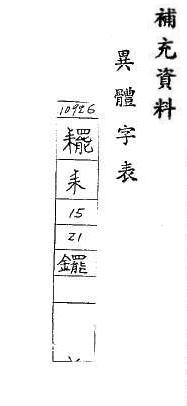 補充資料
異體字表
10926
䎱
耒
15
21
䥯